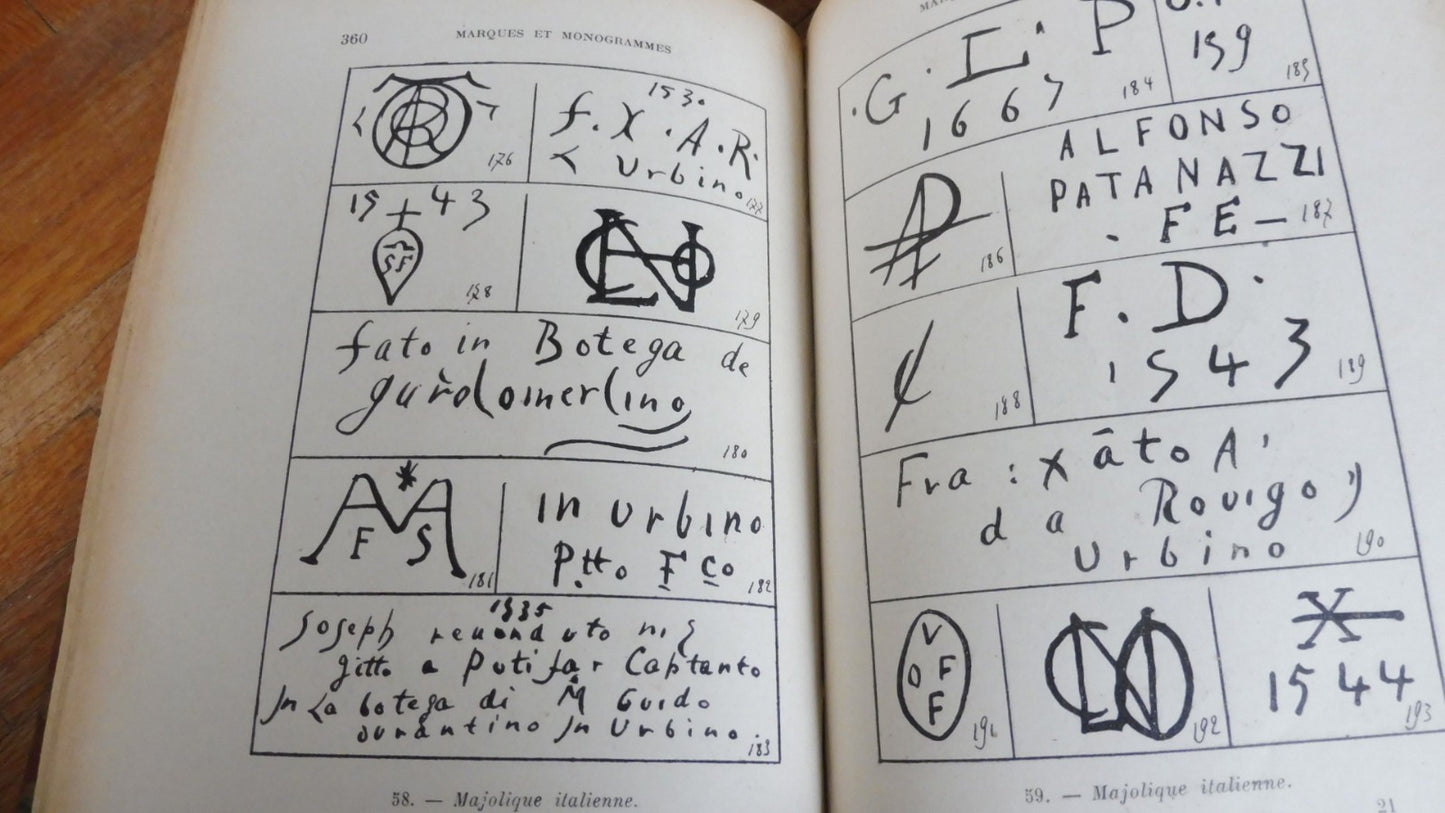 360
MARQUES ET MONOGRAMMES
176
1530
f. X. A. R.
Urbino
177
15 + 43
SF
178
179
fato in Botega de
180
F S
181
in urbino
182
1535
Joseph
gitto a Putifar Captanto
In La botega di M Guido
durantino In Urbino.
183
.G. L. P
1667
184
159
185
AP
186
ALFONSO
PATANAZZI
. F E —
187
188
F. D.
1543
189
Fra : Xāto A'
da Rovigo
Urbino
190
V
O F
F
191
192
X
1544
193
58. — Majolique italienne.
59. — Majolique italienne.
21